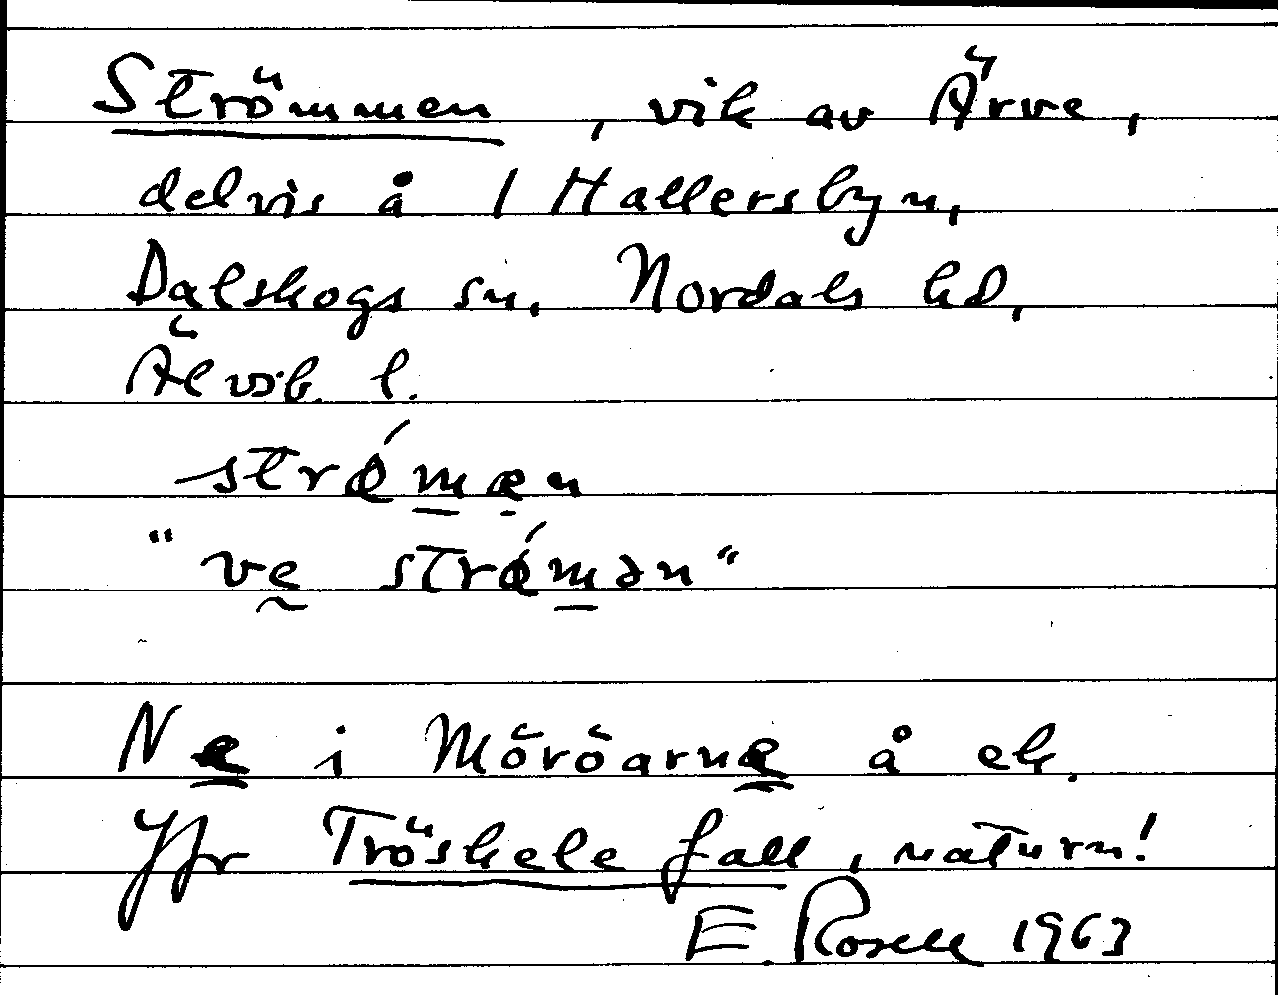 Strömmen, vik av Ärve,
delvis å 1 Hallersbyn,
Dalskogs sn, Nordals hd,
Älvsb. l.
strǿmæn
"ve strǿmən"
Næ i Möröarnæ å ek.
Jfr Tröskele fall, naturn!
E. Rosell 1963